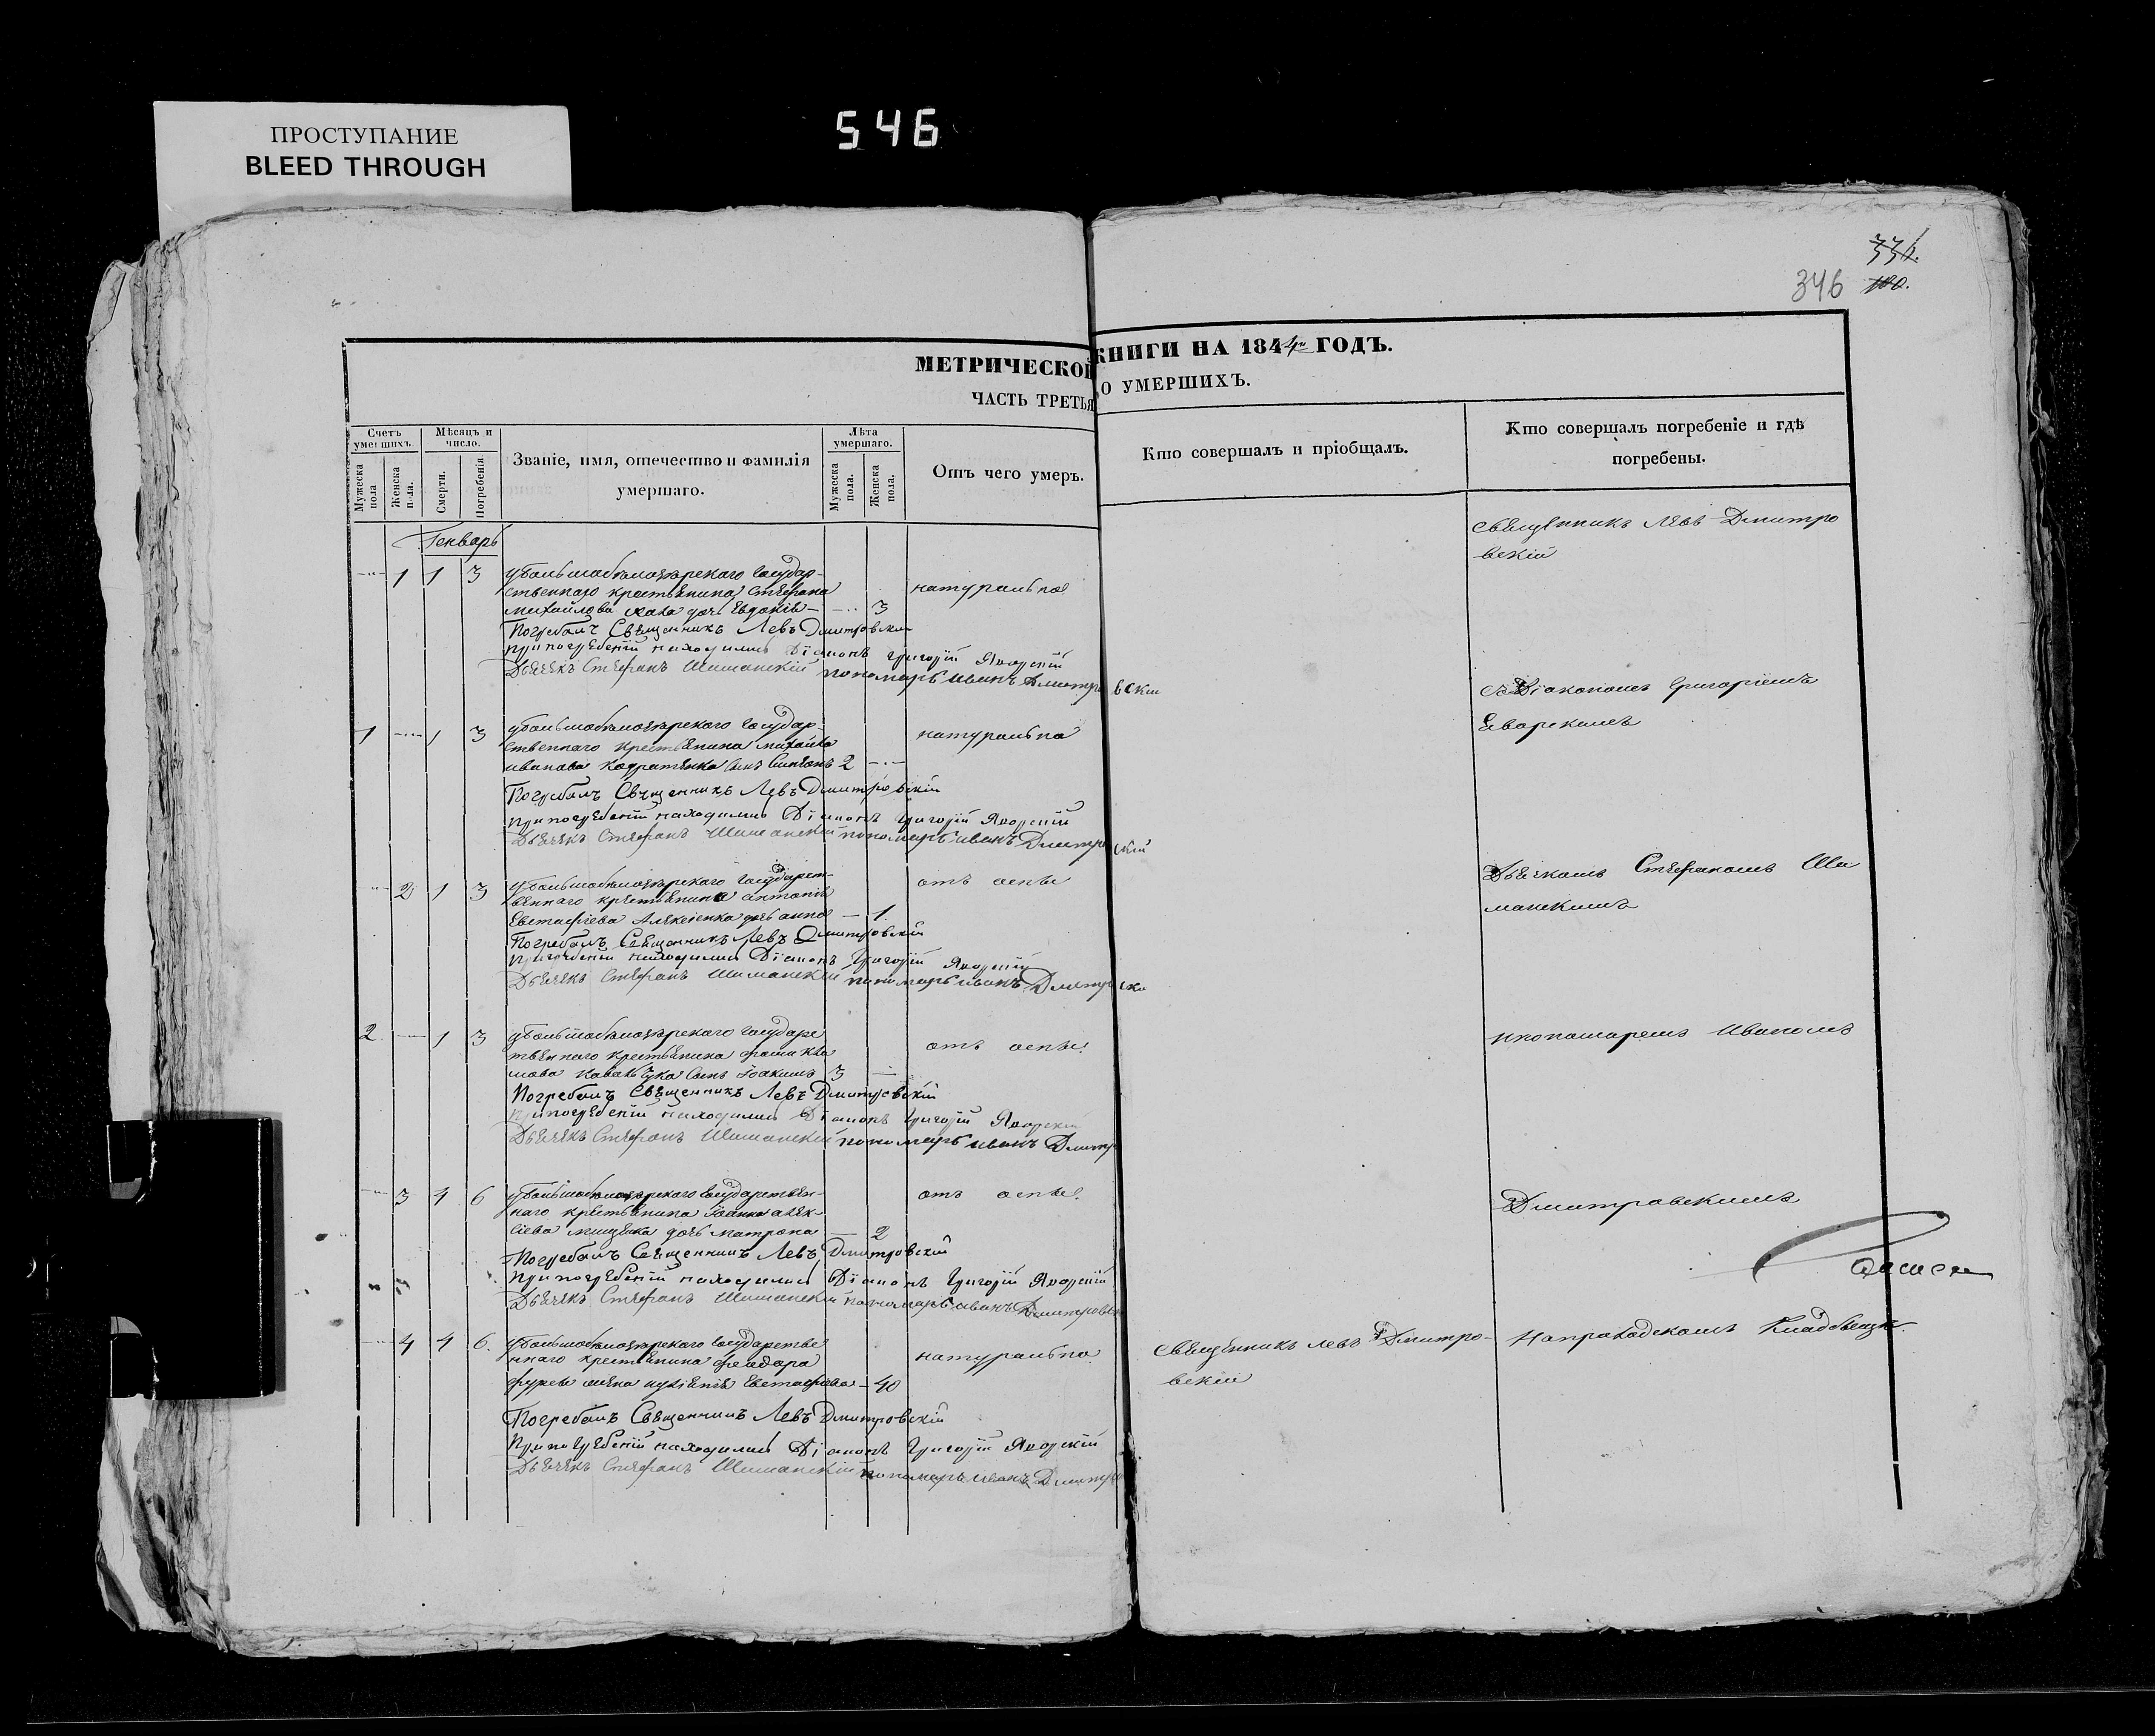 ПРОСТУПАНИЕ
BLEED THROUGH
546
336.
346 100.
МЕТРИЧЕСКОЙ КНИГИ НА 1844й ГОДЪ.
ЧАСТЬ ТРЕТЬЯ О УМЕРШИХЪ.
Счетъ умершихъ.
Мужеска пола
Женска пола.
Мѣсяцъ и число.
Смерти.
Погребенія
Званіе, имя, отечество и фамилія умершаго.
Лѣта умершаго.
Мужеска пола.
Женска пола.
Отъ чего умеръ.
Кто совершалъ и пріобщалъ.
Кто совершалъ погребеніе и гдѣ погребены.
Генварь
1 1 3 Государ-
ственнаго крестьянина Стефана натурально
Михайлова дочь Евдокія 3
Погребалъ Священникъ Левъ Дмитровскій
при погребеніи находились Діаконъ Григорій Яворскій
Дьячекъ Стефанъ Шиманскій пономарь Иванъ Дмитровскій
1 1 3 Государ
ственнаго крестьянина Михайла натурально
Иванова Кодратенка сынъ Симеонъ 2
Погребалъ Священникъ Левъ Дмитровскій
при погребеніи находились Діаконъ Григорій Яворскій
Дьячекъ Стефанъ Шиманскій пономарь Иванъ Дмитровскій
2 1 3 Государст-
веннаго крестьянина Антонія отъ оспы
Евстафіева Алексіенка дочь Анна 1
Погребалъ Священникъ Левъ Дмитровскій
при погребеніи находились Діаконъ Григорій Яворскій
Дьячекъ Стефанъ Шиманскій пономарь Иванъ Дмитровскі
2 1 3 Государс
твеннаго крестьянина отъ оспы.
сынъ Іоакимъ 3
Погребалъ Священникъ Левъ Дмитровскій
при погребеніи находились Діаконъ Григорій Яворскій
Дьячекъ Стефанъ Шиманскій пономарь Иванъ Дмитр
3 4 6 Государствен-
наго крестьянина Іоанна Алек- отъ оспы.
сіева дочь Матрона 2
Погребалъ Священникъ Левъ Дмитровскій
При погребеніи находились Діаконъ Григорій Яворскій
Дьячекъ Стефанъ Шиманскій пономарь Иванъ Дмитровск
4 4 6. Государстве
ннаго крестьянина Феодора натурально
жена Евстафіева 40
Погребалъ Священникъ Левъ Дмитровскій
При погребеніи находились Діаконъ Григорій Яворскій
Дьячекъ Стефанъ Шиманскій пономарь Иванъ Дмитро
Священникъ Левъ Дмитро-
вскій
Священникъ Левъ Дмитро
вскій
Діакономъ Григоріемъ
Еворскимъ
Дьячкомъ Стефаномъ Ши
манскимъ
и пономаремъ Иваномъ
Дмитровскимъ
На приходскомъ Кладбищѣ